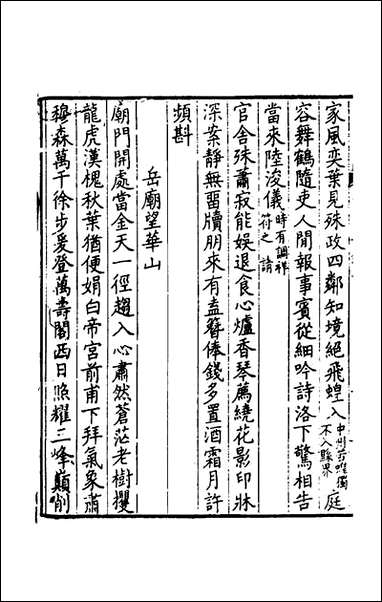 家風奕葉見殊政四鄰知境絕飛蝗入中州前蝗獨不入縣界庭
容舞鶴隨吏人閒報事賓從細吟詩洛下驚相告
當來陸浚儀時有調祥符之請
官舍殊蕭寂能娛退食心爐香琴薦繞花影印牀
深案靜無留牘朋來有盍簪俸錢多置酒霜月許
頻斟
岳廟望華山
廟門開處當金天一徑趨入心肅然蒼茫老樹攫
龍虎漢槐秋葉猶便娟白帝宮前甫下拜氣象肅
穆森萬千徐步爰登萬壽閣西日照耀三峰巔削